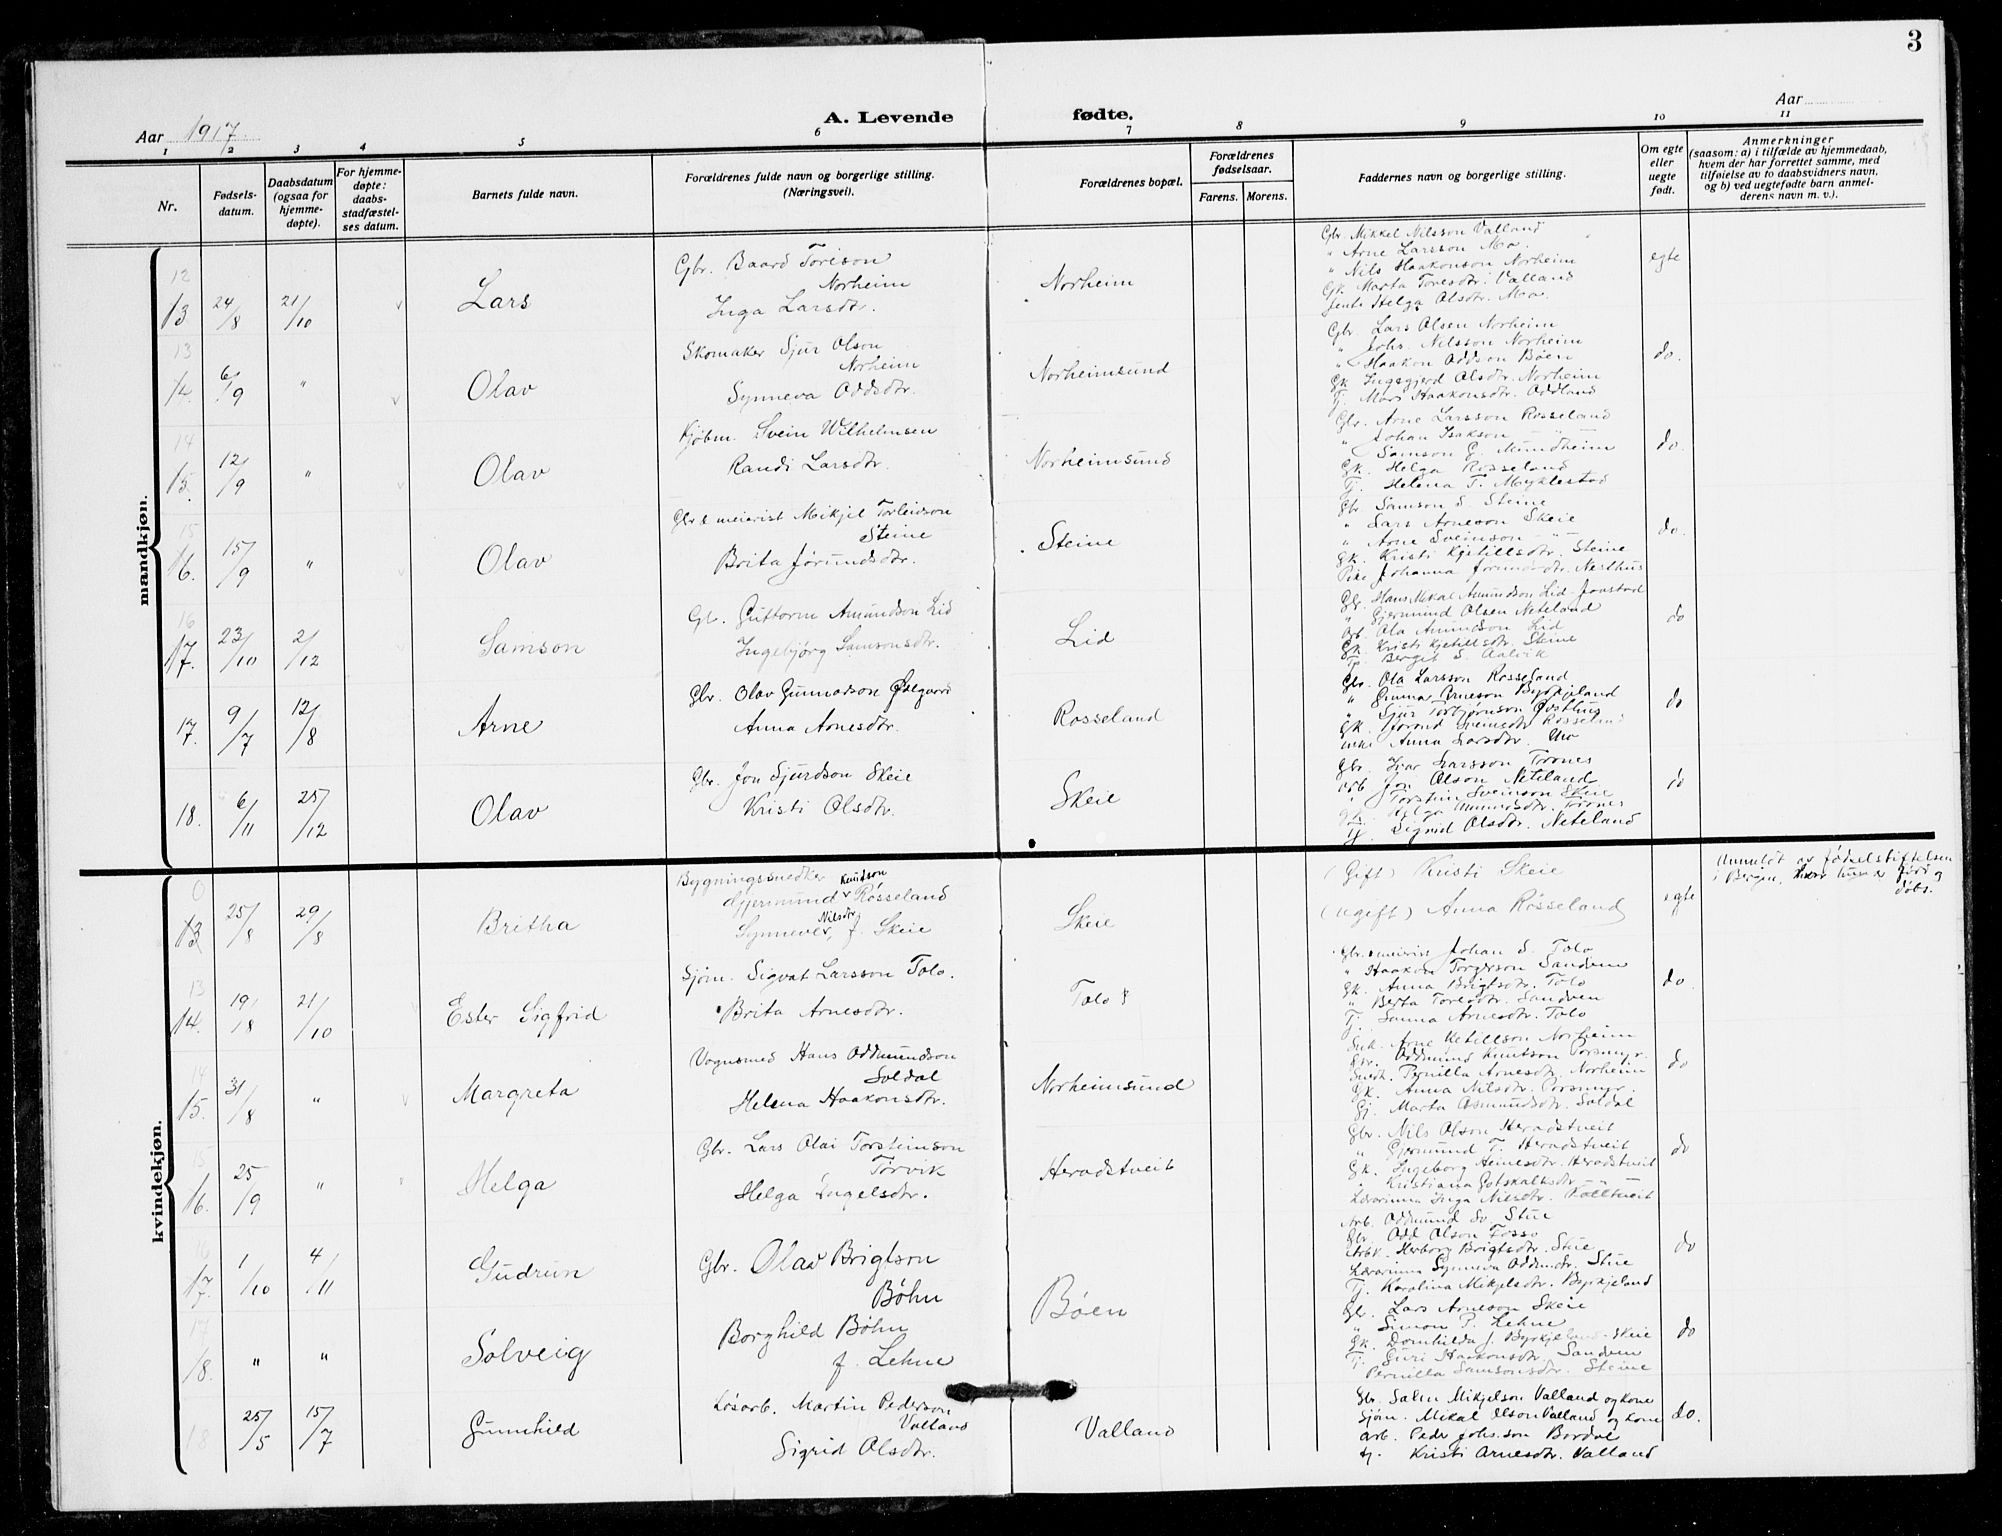 3
Aar 1917.
A. Levende fødte.
Aar
1 2 3 4 5 6 7 8 9 10 11
Nr.
Fødsels-
datum.
Daabsdatum
(ogsaa for
hjemme-
døpte).
For hjemme-
døpte:
daabs-
stadfæstel-
ses datum.
Barnets fulde navn.
Forældrenes fulde navn og borgerlige stilling.
(Næringsvei).
Forældrenes bopæl.
Forældrenes
fødselsaar.
Farens. Morens.
Faddernes navn og borgerlige stilling.
Om egte
eller
uegte
født.
Anmerkninger
(saasom: a) i tilfælde av hjemmedaab,
hvem der har forrettet samme, med
tilføielse av to daabsvidners navn,
og b) ved uegtefødte barn anmel-
derens navn m. v.).
mandkjøn.
12
13 24/8 21/10 Lars
Gbr. Baard Toreson
Norheim
Inga Larsdtr.
Norheim
Gbr. Mikkel Nilsson Valland
" Arne Larsson Mo.
" Nils Haakonson Norheim
Gk. Marta Toresdtr. Valland
Jente Helga Olsdtr. Mo.
egte
13
14. 6/9 " Olav
Skomaker Sjur Olson
Norheim
Synneva Oddsdtr.
Norheimsund
Gbr. Lars Olsen Norheim
" Johs. Nilsson Norheim
" Haakon Oddson Bøen
Gk. Ingegjerd Olsdtr. Norheim
Tj. Mari Haakonsdtr. Oddland
do.
14
15. 12/9 " Olav
Kjøbm. Svein Wilhelmsen
Randi Larsdtr.
Norheimsund
Gbr. Arne Larsson Rosseland
" Johan Isakson — " —
" Samson G. Mundheim
Gk. Helga Rosseland
Tj. Helena T. Myklestad
do.
15
16. 15/9 " Olav
Gbr & meierist Mikjel Torleidson
Steine
Brita Jørundsdtr.
Steine
Gbr. Samson S. Steine
" Lars Arneson Skeie
" Arne Sveinson — " —
Gk. Kristi Kjetillsdtr. Steine
Pike Johanna Jørundsdtr. Nesthus
do.
16
17. 23/10 2/12 Samson
Gb. Guttorm Amundson Lid
Ingebjørg Samsonsdtr.
Lid
Gbr. Hans Mikal Amundson Lid
" Gjermund Olsen Neteland
Arb. Ola Amundson Lid
Gk. Kristi Kjetillsdtr. Steine
Tj. Berget S. Aalvik
do
17. 9/7 12/8 Arne
Gbr. Olav Gunnarson
Anna Arnesdtr.
Rosseland
Gbr. Ola Larsson Rosseland
" Gunnar Arneson Byrkjeland
" Sjur Torbjørnson
Gk. Sveinsdtr. Rosseland
Anna Larsdtr. Mo
do
18. 6/11 25/12 Olav
Gbr. Jon Sjurdson Skeie
Kristi Olsdtr.
Skeie
Gbr. Ivar Larsson Trones
Arb Jon Olson Neteland
" Torstein Sveinson Skeie
Gk. Helga Amundsdtr. Trones
Tj. Sigrid Olsdtr. Neteland
do
kvindekjøn.
13 25/8 29/8 Britha
Bygningssnedker Knutson
Gjermund Rosseland
Nilsdtr
Synneve, f. Skeie
Skeie
(Gift) Kristi Skeie
(Ugift) Anna Rosseland
egte
Anmeldt av fødselstiftelsen
i Bergen, hvor hun er født og
døbt.
13
14. 19/8 21/10 Ester Sigfrid
Sjøm. Sigvat Larsson Tolo.
Brita Arnesdtr.
Tolo
Gbr. & meierist Johan S. Tolo
" Haakon Torgerson Sandven
Gk. Anna Brigtsdtr. Tolo
" Berta Toresdtr. Sandven
Tj. Sanna Arnesdtr. Tolo
do
14
15. 31/8 " Margreta
Vognsmed Hans Oddmundson
Soldal
Helena Haakonsdtr.
Norheimsund
Snk. Arne Ketillson Norheim
Gbr. Oddmund Knutson Porsmyr.
Snedk. Pernilla Arnesdtr. Norheim
Gk. Anna Nilsdtr. Porsmyr.
Gj. Marta Osmundsdtr. Soldal
do
15
16. 25/9 " Helga
Gbr. Lars Olai Torsteinson
Torvik
Helga Ingelsdtr.
Heradstveit
Gbr. Nils Olson Heradstveit
" Gjermund T. Heradstveit
Gk. Ingeborg Heinesdtr. Heradstveit
" Kristiana Gotskalksdtr — " —
Lærarinna Inga Nilsdtr. Kolltveit
do
16
17. 1/10 4/11 Gudrun
Gbr. Olav Brigtson
Bøhn
Bøen
Arb. Oddmund Stue
Gbr. Odd Olson Fosso
Arbk. Herborg Brigtsdtr. Stue
Lærarinna Synneva Oddmdtr. Stue
Tj. Karolina Mikjelsdtr. Byrkjeland
do
17
18. " " Solveig
Borghild Bøhn
f. Lehne
Gb. Lars Arneson Skeie
" Simon P. Lehne
Gk. Domhilda J. Byrkjeland-Skeie
Tj. Guri Haakonsdtr. Sandven
Pernilla Samsonsdtr. Steine
do
18 25/5 15/7 Gunnhild
Løsarb. Martin Pederson
Valland
Sigrid Olsdtr.
Valland
Gbr. Salm. Mikjelson Valland og kone
Sjøm. Mikal Olson Valland og kone
Arb. Peder Johs.son Bordal
Tj. Kristi Arnesdtr. Valland
do.